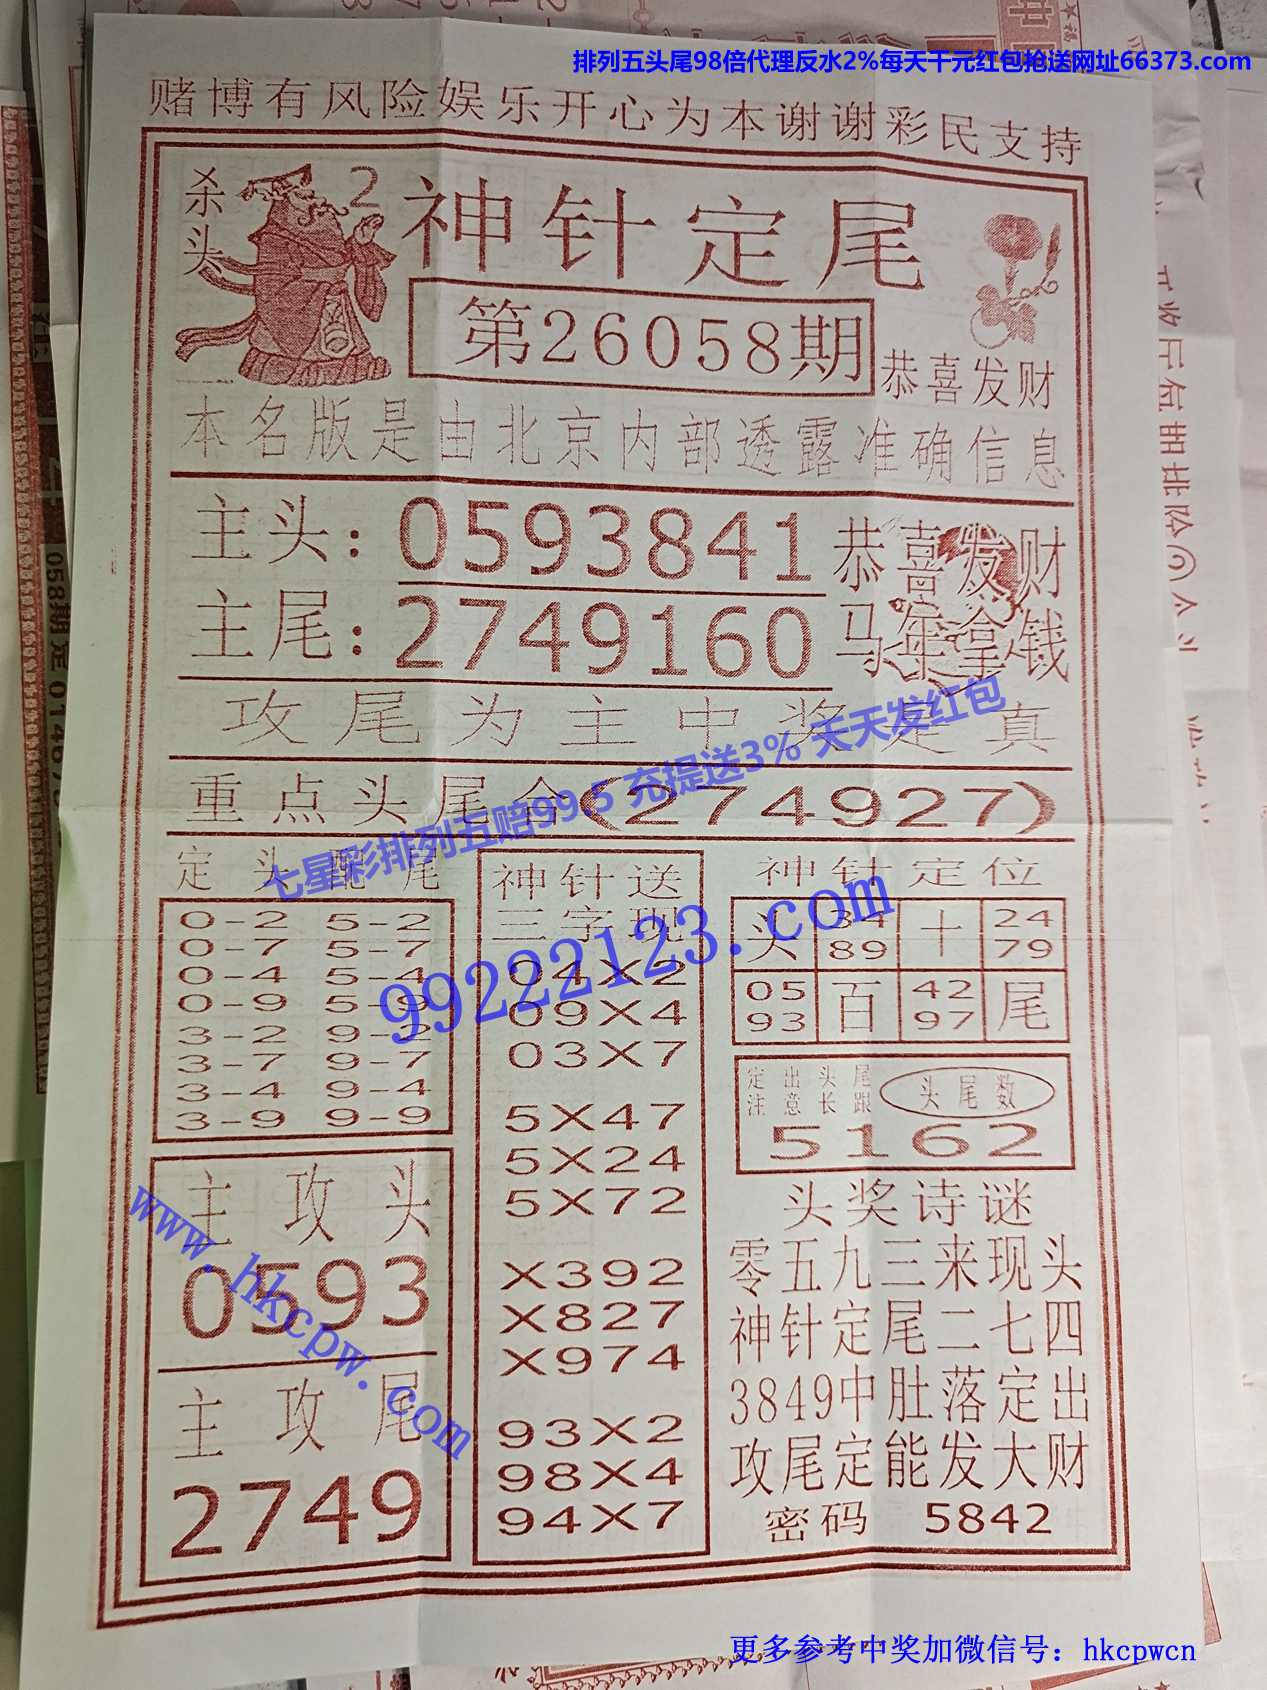 排列五头尾98倍代理反水2%每天千元红包抢送网址66373.com
赌博有风险娱乐开心为本谢谢彩民支持
杀头
2
神针定尾
第26058期
恭喜发财
本名版是由北京内部透露准确信息
主头：0593841
主尾：2749160
恭喜发财
马年拿钱
攻尾为主中奖是真
重点头尾合(274927)
七星彩排列五赔99.5 充提送3% 天天发红包
99222123.com
定头配尾
0-2 5-2
0-7 5-7
0-4 5-4
0-9 5-9
3-2 9-2
3-7 9-7
3-4 9-4
3-9 9-9
主攻头
0593
主攻尾
2749
www.hkcpw.com
神针送
三字现
04X2
09X4
03X7
5X47
5X24
5X72
X392
X827
X974
93X2
98X4
94X7
神针定位
头 34 十 24
89 79
05 百 42 尾
93 97
定出头尾
注意长跟
头尾数
5162
头奖诗谜
零五九三来现头
神针定尾二七四
3849中肚落定出
攻尾定能发大财
密码 5842
更多参考中奖加微信号：hkcpwcn